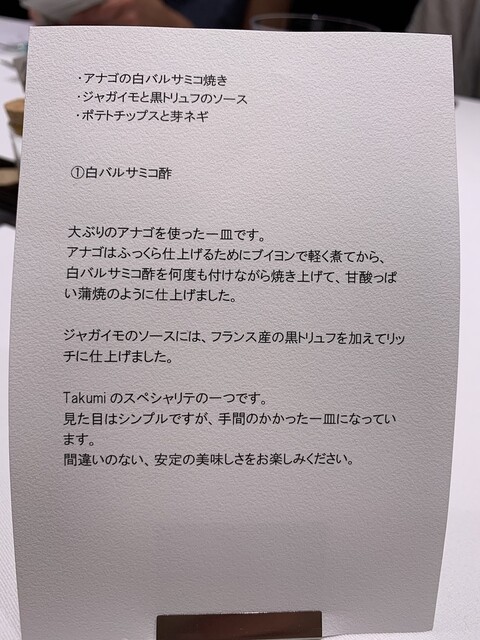 ・アナゴの白バルサミコ焼き
・ジャガイモと黒トリュフのソース
・ポテトチップスと芽ネギ
①白バルサミコ酢
大ぶりのアナゴを使った一皿です。
アナゴはふっくら仕上げるためにブイヨンで軽く煮てから、
白バルサミコ酢を何度も付けながら焼き上げて、甘酸っぱ
い蒲焼のように仕上げました。
ジャガイモのソースには、フランス産の黒トリュフを加えてリッ
チに仕上げました。
Takumiのスペシャリテの一つです。
見た目はシンプルですが、手間のかかった一皿になってい
ます。
間違いのない、安定の美味しさをお楽しみください。